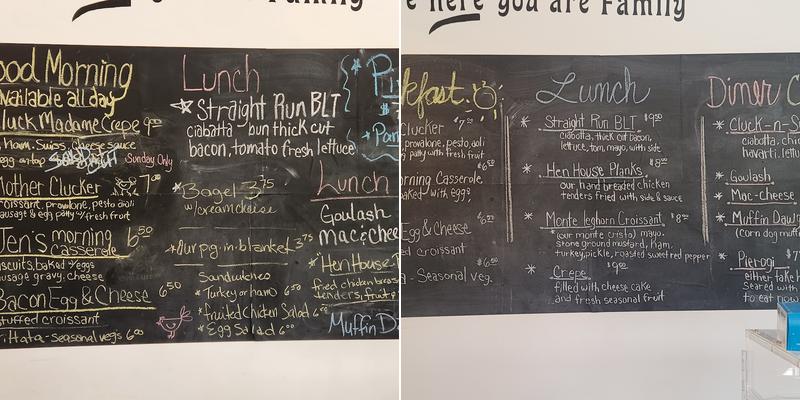 Family
Good Morning
Available all day
Cluck Madame Crepe 9⁰⁰
Ham, Swiss, cheese sauce
egg on top
Sunday Only
Mother Clucker 7⁰⁰
croissant, provalone, pesto aioli
sausage & egg patty w/ fresh fruit
Jen's morning 6⁵⁰
casserole
biscuits, baked w/ eggs
sausage gravy, cheese
Bacon Egg & Cheese 6⁵⁰
stuffed croissant
Hata - seasonal veg's 6⁰⁰
Lunch
Straight Run BLT
ciabatta bun thick cut
bacon, tomato fresh lettuce
* Bagel 3⁷⁵
w/ cream cheese
* Our pig.in.blanket 3⁷⁵
Sandwiches
* Turkey or ham 6⁵⁰
* fruited chicken Salad
* Egg Salad 6⁰⁰
Lunch
Goulash
mac & chee
Hen House
fried chicken breast
tenders, fruit
Muffin D
e here you are Family
kfast.
Clucker $7
provalone, pesto, aoli
patty with fresh fruit
orning Casserole
baked with eggs,
Egg & Cheese
ed croissant
a - Seasonal veg. $6
Lunch
* Straight Run BLT $9⁵⁰
ciabatta, thick cut bacon,
lettuce, tom, mayo, with side
* Hen House Planks
our hand breaded chicken
tenders fried with side & sauce
* Monte leghorn Croissant
(our monte cristo) mayo,
stone ground mustard, ham,
turkey, pickle, roasted sweet red pepper
* Crepe
filled with cheese cake
and fresh seasonal fruit
Diner C
* Cluck-n-S
ciabatta, chic
havarti, lettu
* Goulash
* Mac-cheese
* Muffin Dawg
(corn dog muff
* Pierogi
either take h
Seared with
to eat now